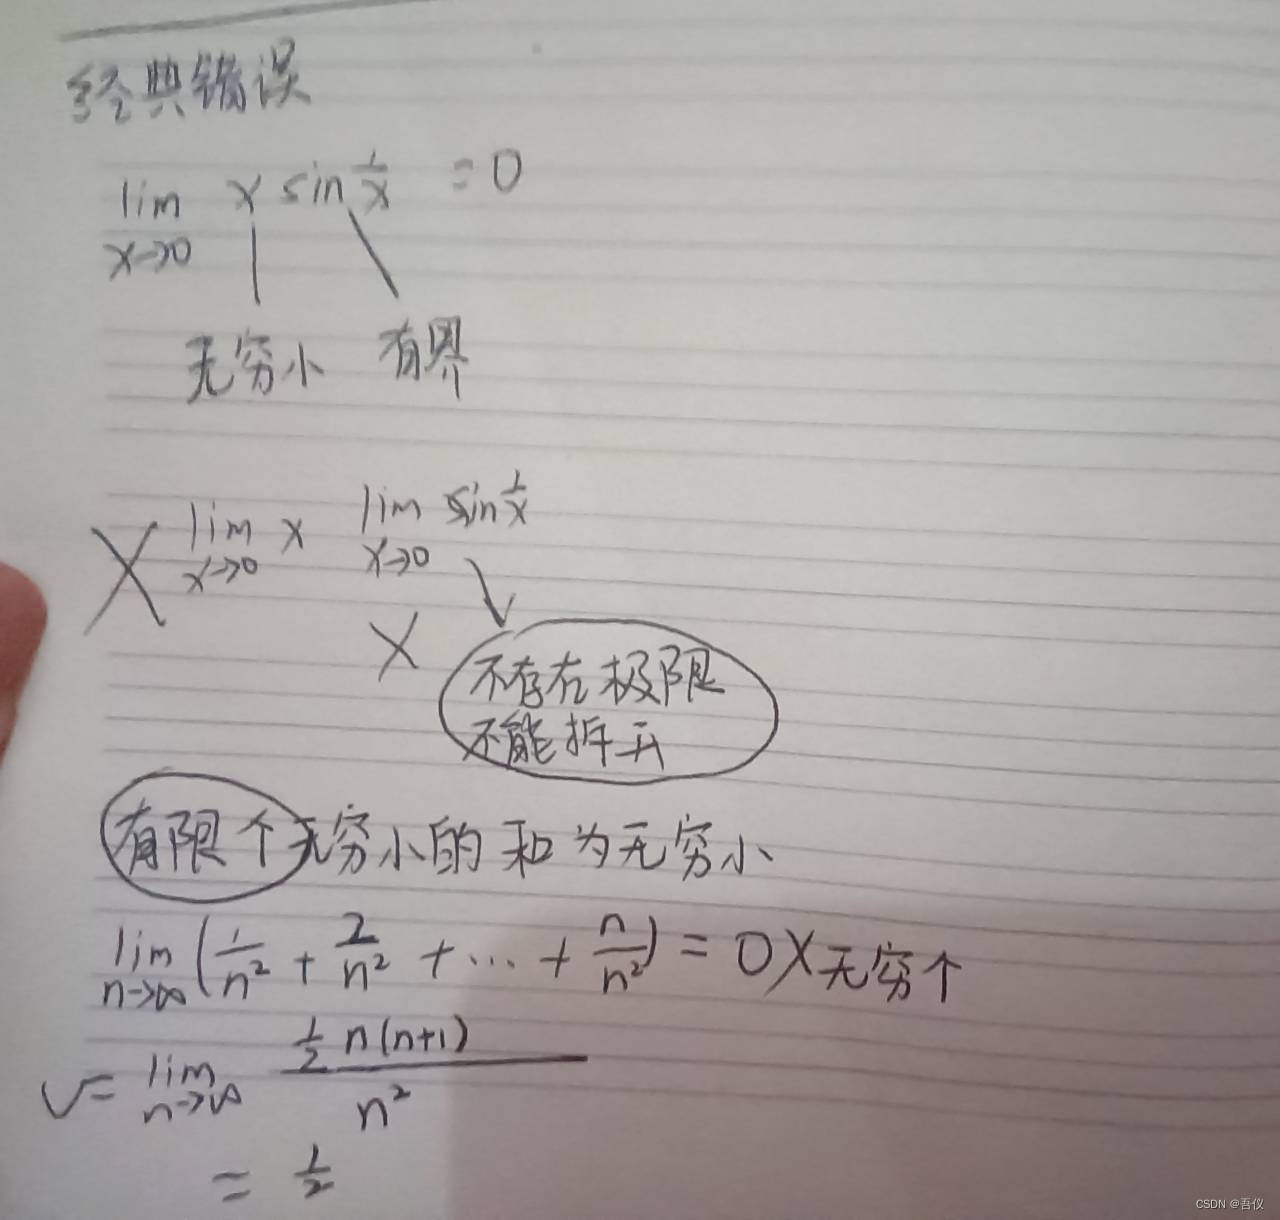 经典错误
lim x→0 x sin 1/x = 0
无穷小 有界
X lim x→0 x lim x→0 sin 1/x
X 不存在极限
不能拆开
有限个无穷小的和为无穷小
lim n→∞ (1/n² + 2/n² + ... + n/n²) = 0 X 无穷个
√ = lim n→∞ ½ n(n+1) / n²
= ½
CSDN @吾仪